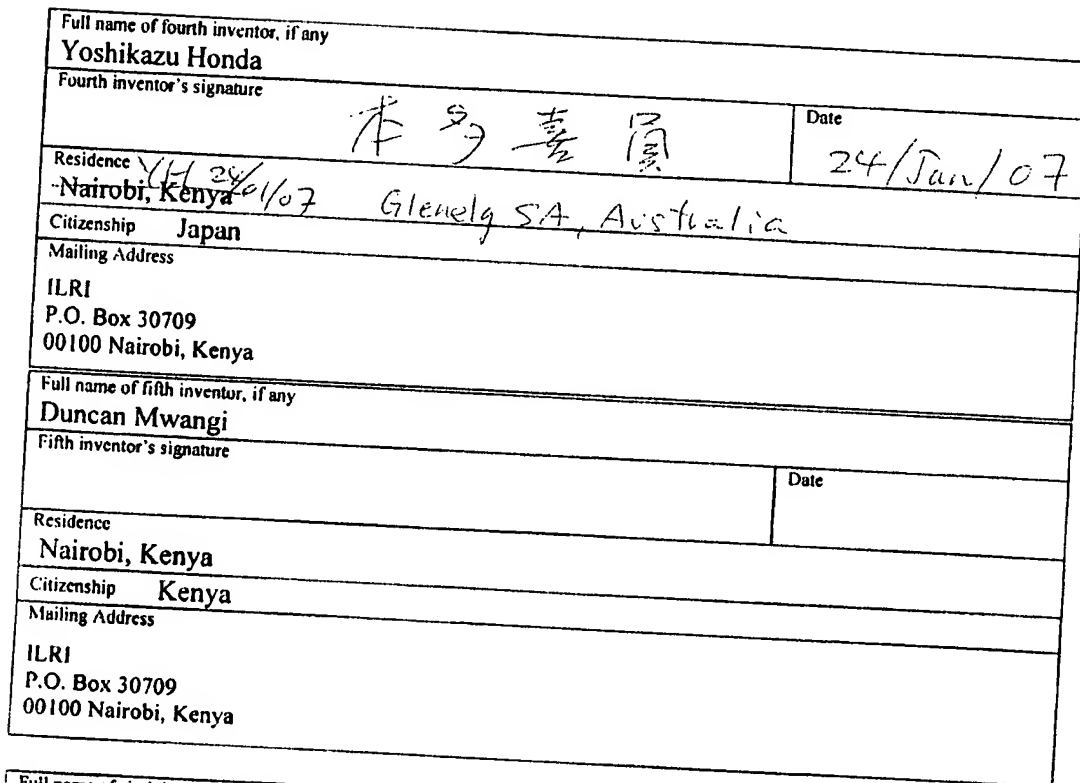 Full name of fourth inventor, if any
Yoshikazu Honda
Fourth inventor's signature
本多喜員
Date
24/Jan/07
Residence YH 24/01/07
Nairobi, Kenya Glenelg SA, Australia
Citizenship Japan
Mailing Address
ILRI
P.O. Box 30709
00100 Nairobi, Kenya
Full name of fifth inventor, if any
Duncan Mwangi
Fifth inventor's signature
Date
Residence
Nairobi, Kenya
Citizenship Kenya
Mailing Address
ILRI
P.O. Box 30709
00100 Nairobi, Kenya